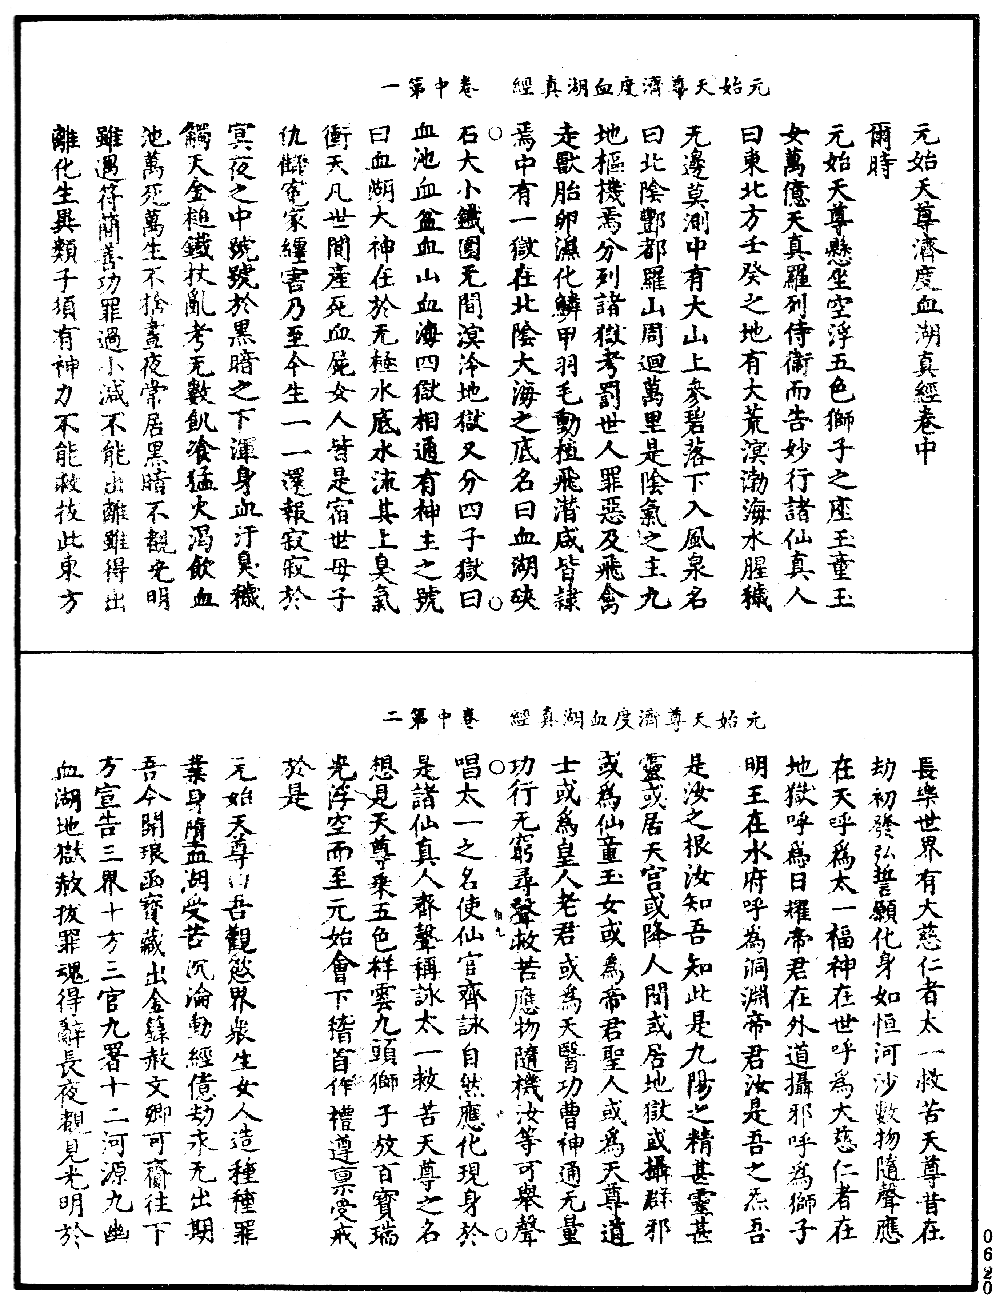 元始天尊濟度血湖真經　卷中第一
元始天尊濟度血湖真經卷中
爾時
元始天尊懸坐空浮五色獅子之座玉童玉
女萬億天真羅列侍衛而告妙行諸仙真人
曰東北方壬癸之地有大荒溟渤海水腥穢
无邊莫測中有大山上參碧落下入風泉名
曰北陰酆都羅山周迴萬里是陰氣之主九
地樞機焉分列諸獄考罰世人罪惡及飛禽
走獸胎卵濕化鱗甲羽毛動植飛潛咸皆隸
焉中有一獄在北陰大海之底名曰血湖硤
石大小鐵圍无間溟泠地獄又分四子獄曰
血池血盆血山血海四獄相通有神主之號
曰血湖大神在於无極水底水流其上臭氣
衝天凡世間產死血屍女人皆是宿世母子
仇讎寃家纏害乃至今生一一還報寂寂於
冥夜之中號號於黑暗之下渾身血汙臭穢
觸天金槌鐵杖亂考无數飢飡猛火渴飲血
池萬死萬生不捨晝夜常居黑暗不覩光明
雖遇符簡善功罪過小減不能出離雖得出
離化生異類子須有神力不能救拔此東方
元始天尊濟度血湖真經　卷中第二
長樂世界有大慈仁者太一救苦天尊昔在
劫初發弘誓願化身如恒河沙數物隨聲應
在天呼為太一福神在世呼為大慈仁者在
地獄呼為日耀帝君在外道攝邪呼為獅子
明王在水府呼為洞淵帝君汝是吾之炁吾
是汝之根汝知吾知此是九陽之精甚靈甚
靈或居天宮或降人間或居地獄或攝群邪
或為仙童玉女或為帝君聖人或為天尊道
士或為皇人老君或為天醫功曹神通无量
功行无窮尋聲救苦應物隨機汝等可舉聲
唱太一之名使仙官齊詠自然應化現身於
是諸仙真人齊聲稱詠太一救苦天尊之名
想見天尊乘五色祥雲九頭獅子放百寶瑞
光浮空而至元始會下稽首作禮遵稟受戒
於是
元始天尊曰吾觀慾界眾生女人造種種罪
業身墮血湖受苦沉淪動經億劫永无出期
吾今開琅函寶藏出金籙赦文卿可齎往下
方宣告三界十方三官九署十二河源九幽
血湖地獄赦拔罪魂得辭長夜覩見光明於
0620